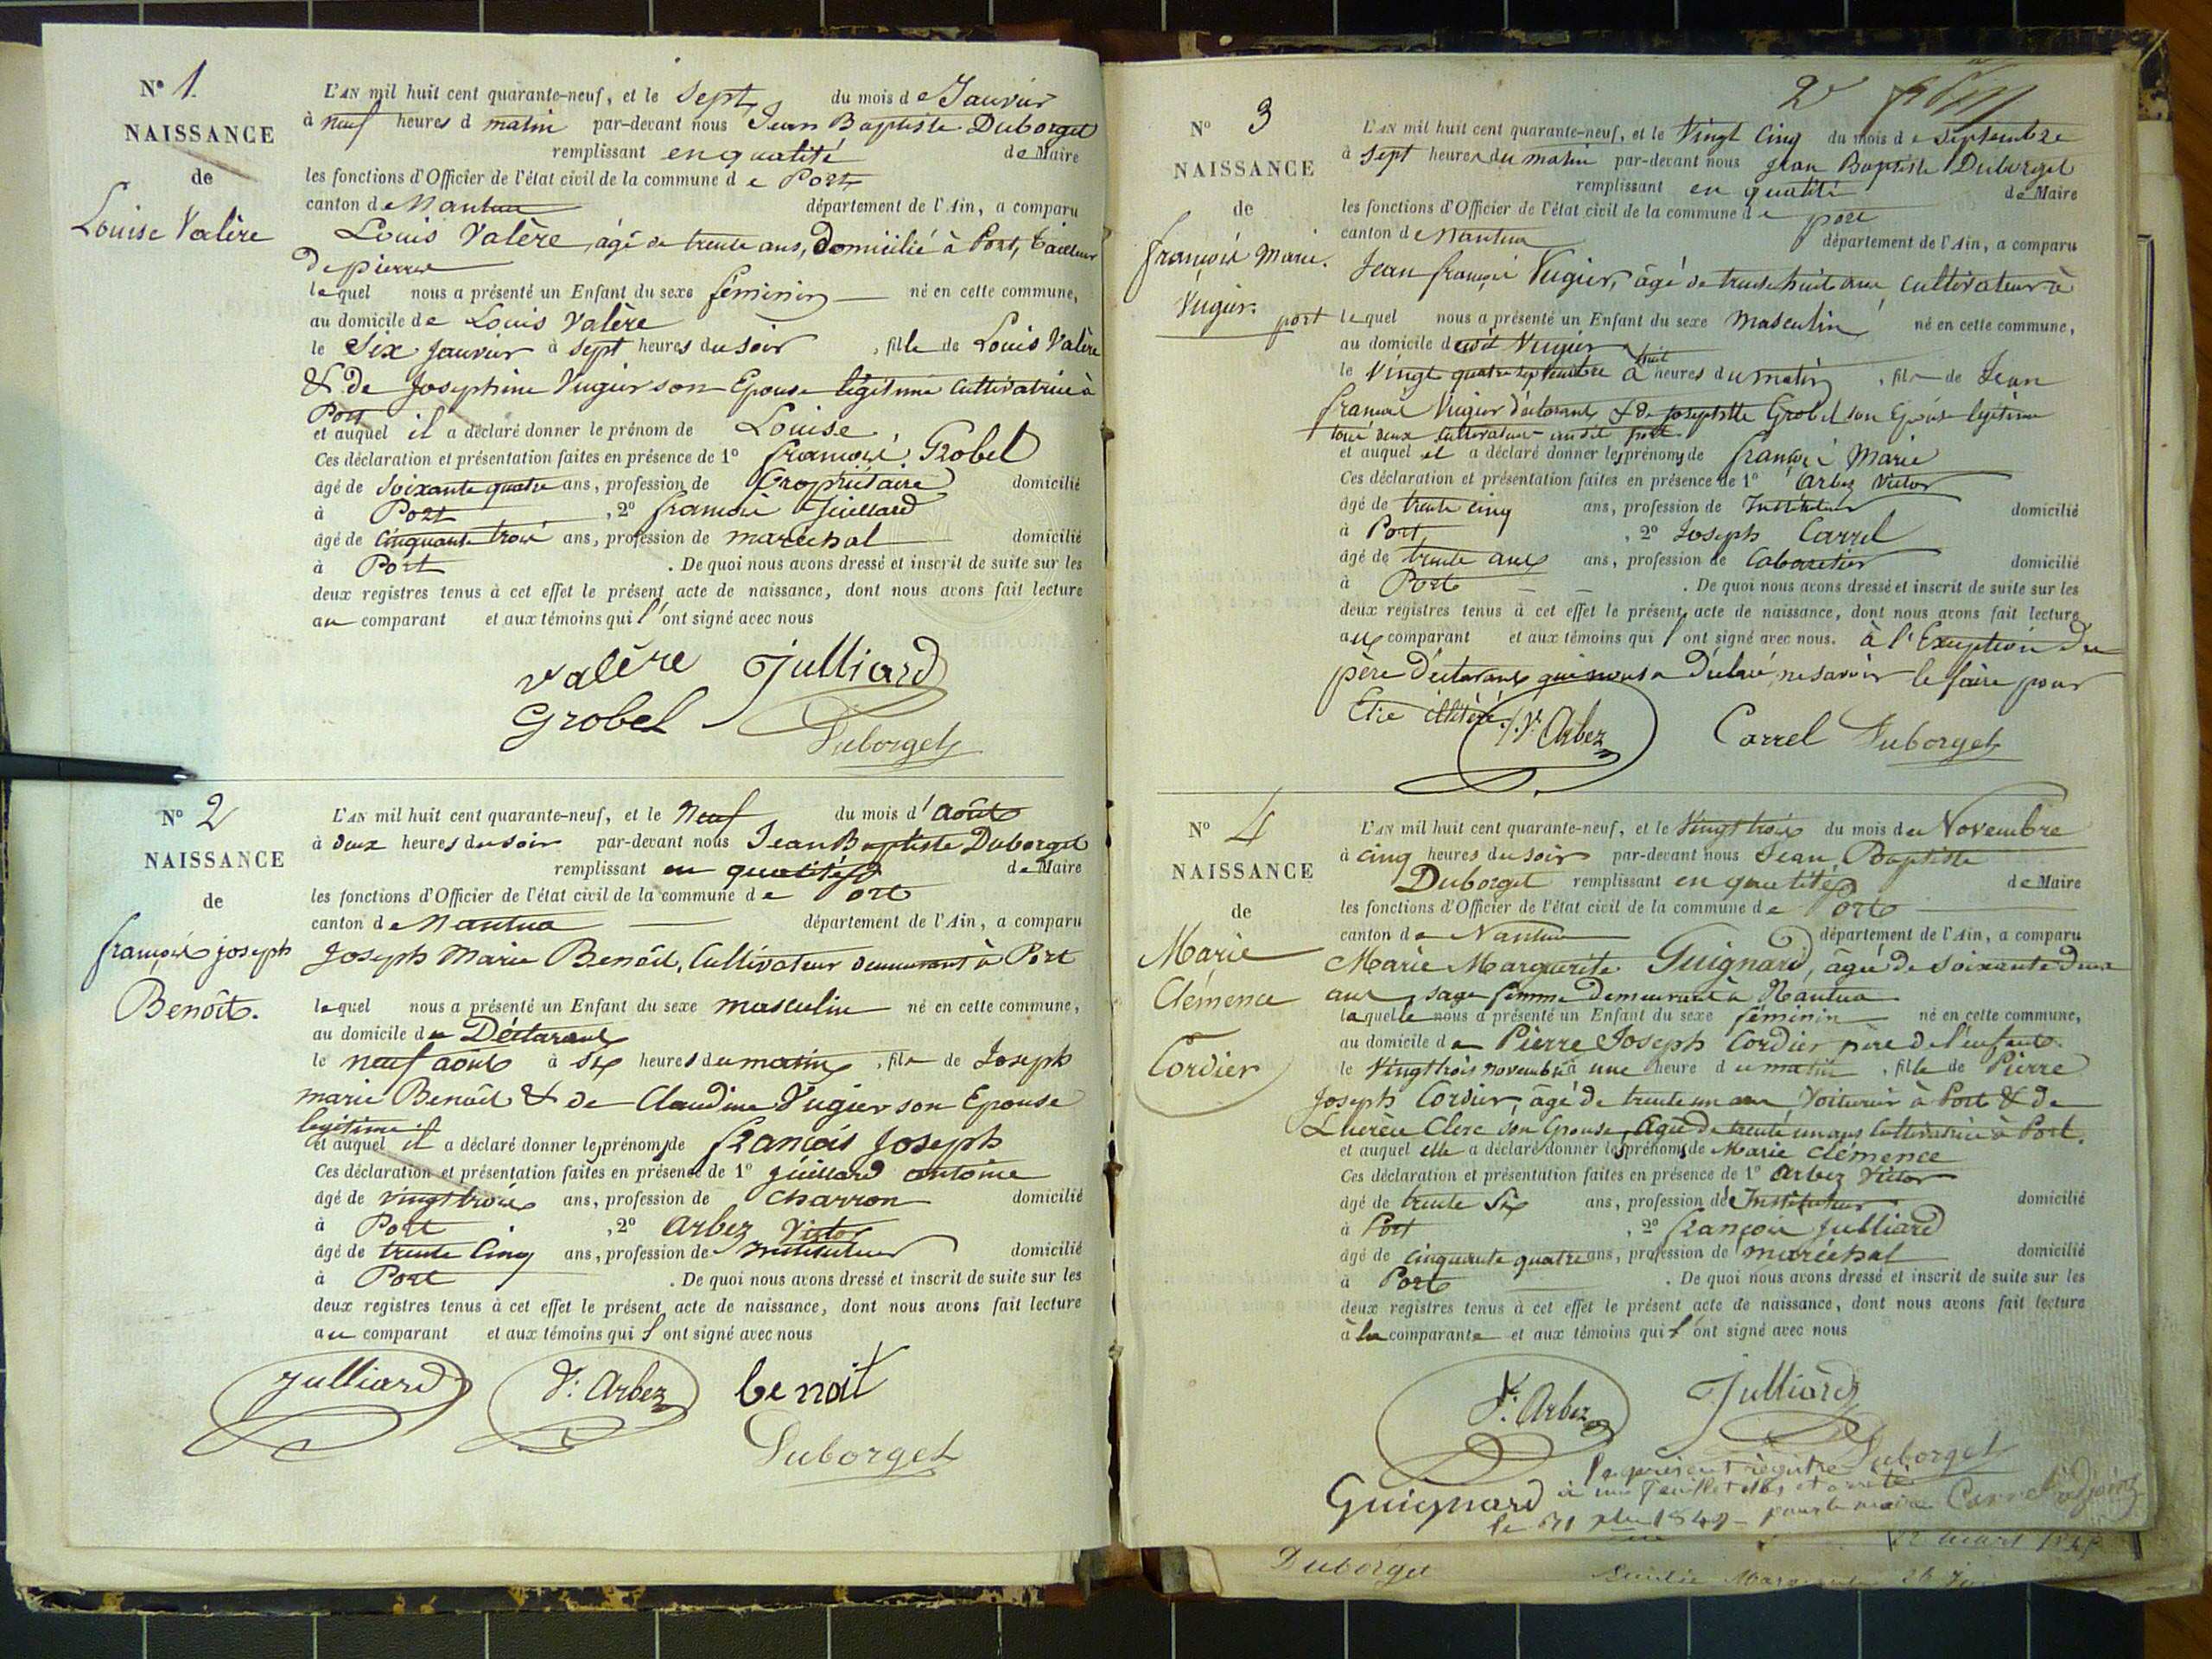 N° 1.
NAISSANCE
de
Louise Valère
L'AN mil huit cent quarante-neuf, et le Sept du mois de Janvier
à neuf heures d matin par-devant nous Jean Baptiste Duborget
remplissant en qualité de Maire
les fonctions d'Officier de l'état civil de la commune de Port
canton de Nantua département de l'Ain, a comparu
Louis Valère, âgé de trente ans, Domicilié à Port, tailleur
de pierres
lequel nous a présenté un Enfant du sexe féminin né en cette commune,
au domicile de Louis Valère
le Six Janvier à Sept heures du soir, fille de Louis Valère
& de Josephine Vugier son Epouse légitime Cultivatrice à
Port
et auquel il a déclaré donner le prénom de Louise
Ces déclaration et présentation faites en présence de 1° françois Grobel
âgé de Soixante quatre ans, profession de Propriétaire domicilié
à Port, 2° françois Juillard
âgé de Cinquante trois ans, profession de maréchal domicilié
à Port. De quoi nous avons dressé et inscrit de suite sur les
deux registres tenus à cet effet le présent acte de naissance, dont nous avons fait lecture
au comparant et aux témoins qui l'ont signé avec nous
valère Julliard
Grobel
Duborget
N° 2
NAISSANCE
de
françois joseph
Benôit.
L'AN mil huit cent quarante-neuf, et le Neuf du mois d'Août
à deux heures du soir par-devant nous Jean Baptiste Duborget
remplissant en qualité de Maire
les fonctions d'Officier de l'état civil de la commune de Port
canton de Nantua département de l'Ain, a comparu
Joseph Marie Benôit, Cultivateur demeurant à Port
lequel nous a présenté un Enfant du sexe masculin né en cette commune,
au domicile du Déclarant
le neuf août à Six heures du matin, fils de Joseph
marie Benôit & de Claudine Vugier son Epouse
légitime.
et auquel il a déclaré donner les prénoms de françois Joseph
Ces déclaration et présentation faites en présence de 1° Juillard antoine
âgé de vingt trois ans, profession de Charron domicilié
à Port, 2° Arbez Victor
âgé de trente Cinq ans, profession de Instituteur domicilié
à Port. De quoi nous avons dressé et inscrit de suite sur les
deux registres tenus à cet effet le présent acte de naissance, dont nous avons fait lecture
au comparant et aux témoins qui l'ont signé avec nous
Julliard V: Arbez benoit
Duborget
2e
N° 3
NAISSANCE
de
françois Marie.
Vugier.
L'AN mil huit cent quarante-neuf, et le Vingt Cinq du mois de Septembre
à Sept heures du matin par-devant nous Jean Baptiste Duborget
remplissant en qualité de Maire
les fonctions d'Officier de l'état civil de la commune de port
canton de Nantua département de l'Ain, a comparu
Jean françois Vugier, âgé de trente huit ans Cultivateur à
port lequel nous a présenté un Enfant du sexe Masculin né en cette commune,
au domicile dudit Vugier
le Vingt quatre septembre à huit heures du matin, fils de Jean
françois Vugier déclarant & de josephtte Grobel son Epouse légitime
tous deux cultivateurs audit port
et auquel il a déclaré donner les prénoms de françois Marie
Ces déclaration et présentation faites en présence de 1° Arbez Victor
âgé de trente cinq ans, profession de Instituteur domicilié
à Port, 2° Joseph Carrel
âgé de trente ans ans, profession de Cabaretier domicilié
à Port. De quoi nous avons dressé et inscrit de suite sur les
deux registres tenus à cet effet le présent acte de naissance, dont nous avons fait lecture
aux comparant et aux témoins qui l'ont signé avec nous. à l'Exception du
père déclarant qui nous a déclaré ne savoir le faire pour
Etre illitéré.
V: Arbez Carrel Duborget
N° 4
NAISSANCE
de
Marie
Clémence
Cordier
L'AN mil huit cent quarante-neuf, et le Vingt trois du mois de Novembre
à cinq heures du soir par-devant nous Jean Baptiste
Duborget remplissant en qualité de Maire
les fonctions d'Officier de l'état civil de la commune de Port
canton de Nantua département de l'Ain, a comparu
Marie Marguerite Guignard, âgée de soixante deux
ans, sage femme demeurant à Nantua
laquelle nous a présenté un Enfant du sexe féminin né en cette commune,
au domicile de Pierre Joseph Cordier père de l'enfant.
le Vingt trois novembre à une heure du matin, fille de Pierre
Joseph Cordier, âgé de trente un ans Voiturier à Port & de
Lucrèce Clerc son Epouse, Agée de trente un ans Cultivatrice à Port.
et auquel elle a déclaré donner les prénoms de Marie Clémence
Ces déclaration et présentation faites en présence de 1° Arbez Victor
âgé de trente Six ans, profession de Instituteur domicilié
à Port, 2° françois Julliard
âgé de Cinquante quatre ans, profession de maréchal domicilié
à Port. De quoi nous avons dressé et inscrit de suite sur les
deux registres tenus à cet effet le présent acte de naissance, dont nous avons fait lecture
à la comparante et aux témoins qui l'ont signé avec nous
V: Arbez Julliard
Duborget
Guignard
le présent régistre
à une feuillet clos et arrêté
le 31 1849 pour le maire Carrel adjoint
Duborget
12 mars